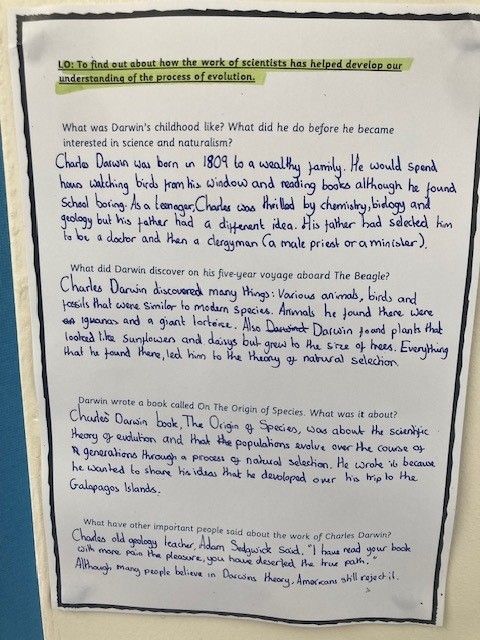 LO: To find out about how the work of scientists has helped develop our
understanding of the process of evolution.
What was Darwin's childhood like? What did he do before he became
interested in science and naturalism?
Charles Darwin was born in 1809 to a wealthy family. He would spend
hours watching birds from his window and reading books although he found
School boring. As a teenager, Charles was thrilled by chemistry, biology and
geology but his father had a different idea. His father had selected him
to be a doctor and then a clergyman (a male priest or a minister).
What did Darwin discover on his five-year voyage aboard The Beagle?
Charles Darwin discovered many things: Various animals, birds and
fossils that were similar to modern species. Animals he found there were
an iguanas and a giant tortoise. Also Darwin Darwin found plants that
looked like sunflowers and daisys but grew to the size of trees. Everything
that he found there, led him to the theory of natural selection.
Darwin wrote a book called On The Origin of Species. What was it about?
Charles' Darwin book, The Origin of Species, was about the scientific
theory of evolution and that the populations evolve over the course of
generations through a process of natural selection. He wrote it because
he wanted to share his ideas that he developed over his trip to the
Galapagos Islands.
What have other important people said about the work of Charles Darwin?
Charles old geology teacher, Adam Sedgwick said, "I have read your book
with more pain the pleasure, you have deserted the true path."
Although many people believe in Darwins theory, Americans still reject it.